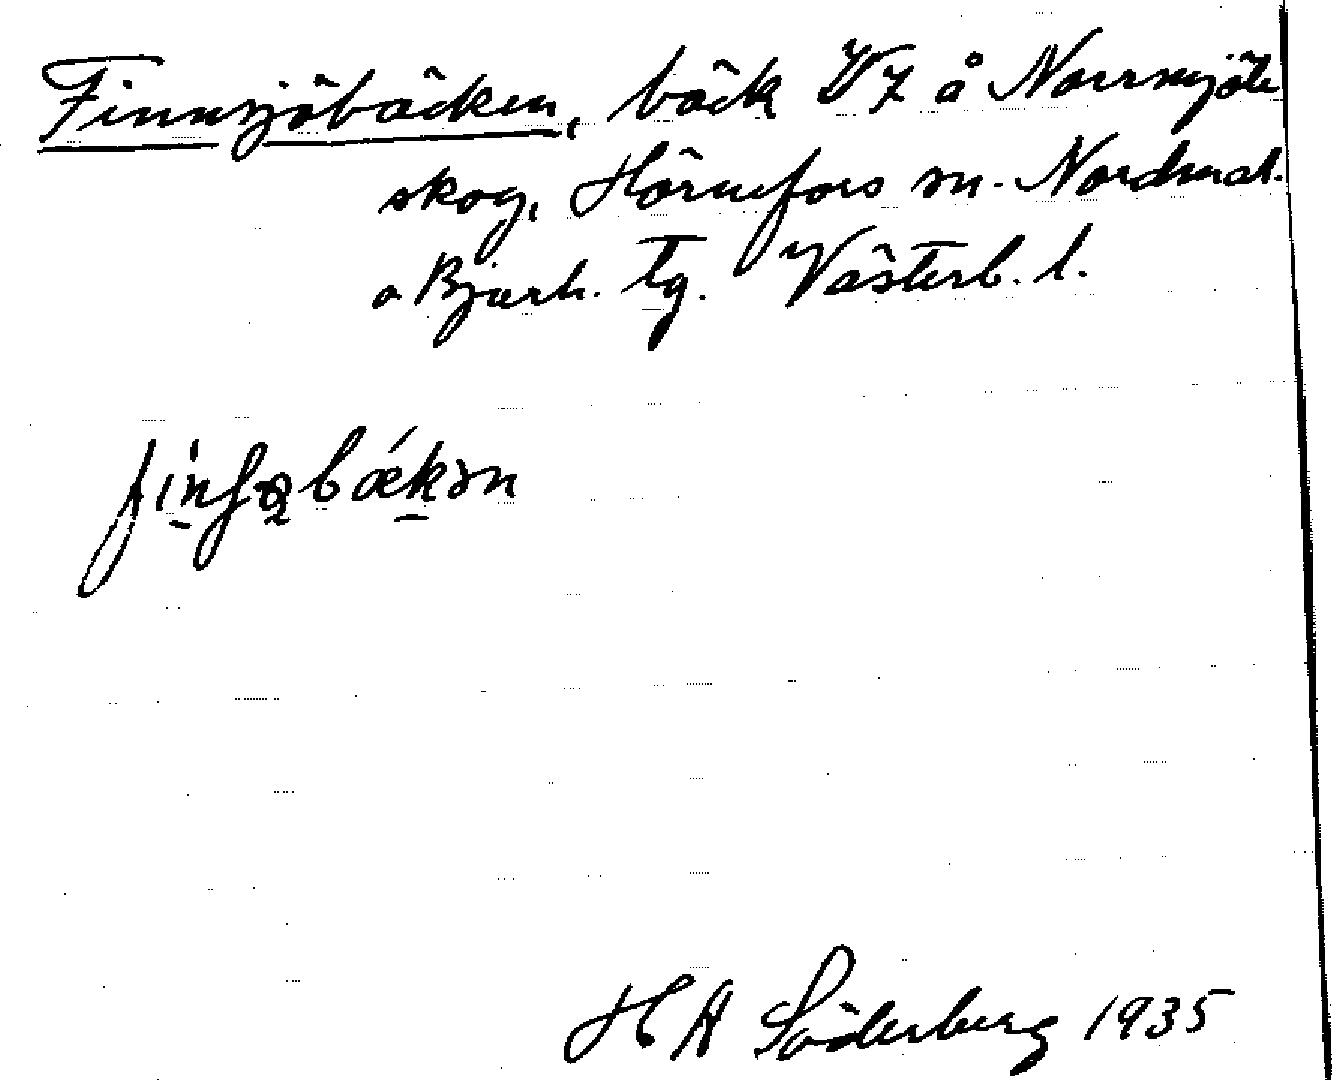 Finnsjöbäcken, bäck V 7 å Norrmjöle
skog, Hörnefors sn. Nordmal.
o Bjurh. tg. Västerb. l.
finʃøbǽkən
H A Söderberg 1935